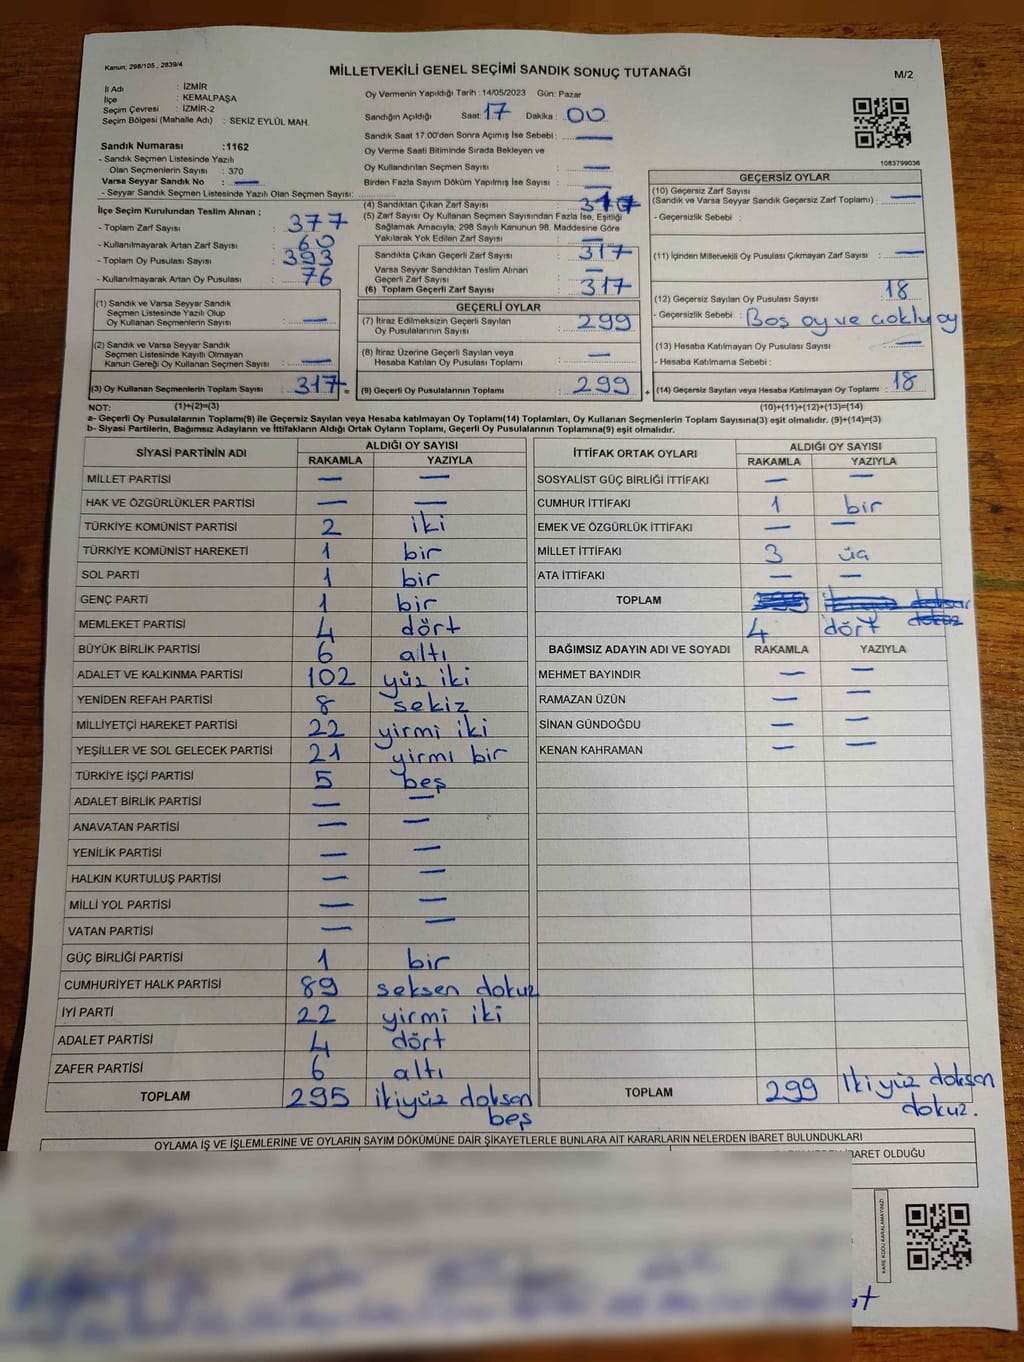 Kanun; 298/105 , 2839/4
MİLLETVEKİLİ GENEL SEÇİMİ SANDIK SONUÇ TUTANAĞI
M/2
İl Adı : İZMİR
İlçe : KEMALPAŞA
Seçim Çevresi : İZMİR-2
Seçim Bölgesi (Mahalle Adı) : SEKİZ EYLÜL MAH.
Oy Vermenin Yapıldığı Tarih : 14/05/2023 Gün: Pazar
Sandığın Açıldığı Saat: 17 Dakika : 00
Sandık Saat 17:00'den Sonra Açımış İse Sebebi : —
Oy Verme Saati Bitiminde Sırada Bekleyen ve
Oy Kullandırılan Seçmen Sayısı : —
Birden Fazla Sayım Döküm Yapılmış İse Sayısı : —
Sandık Numarası :1162
- Sandık Seçmen Listesinde Yazılı
Olan Seçmenlerin Sayısı : 370
Varsa Seyyar Sandık No : —
- Seyyar Sandık Seçmen Listesinde Yazılı Olan Seçmen Sayısı:
1083799036
İlçe Seçim Kurulundan Teslim Alınan ;
- Toplam Zarf Sayısı : 377
- Kullanılmayarak Artan Zarf Sayısı : 60
- Toplam Oy Pusulası Sayısı : 393
- Kullanılmayarak Artan Oy Pusulası : 76
(1) Sandık ve Varsa Seyyar Sandık
Seçmen Listesinde Yazılı Olup
Oy Kullanan Seçmenlerin Sayısı : —
(2) Sandık ve Varsa Seyyar Sandık
Seçmen Listesinde Kayıtlı Olmayan
Kanun Gereği Oy Kullanan Seçmen Sayısı : —
(3) Oy Kullanan Seçmenlerin Toplam Sayısı : 317 =
(4) Sandıktan Çıkan Zarf Sayısı : 317
(5) Zarf Sayısı Oy Kullanan Seçmen Sayısından Fazla İse, Eşitliği
Sağlamak Amacıyla; 298 Sayılı Kanunun 98. Maddesine Göre
Yakılarak Yok Edilen Zarf Sayısı : —
Sandıkta Çıkan Geçerli Zarf Sayısı : 317
Varsa Seyyar Sandıktan Teslim Alınan
Geçerli Zarf Sayısı : —
(6) Toplam Geçerli Zarf Sayısı : 317
GEÇERLİ OYLAR
(7) İtiraz Edilmeksizin Geçerli Sayılan
Oy Pusulalarının Sayısı : 299
(8) İtiraz Üzerine Geçerli Sayılan veya
Hesaba Katılan Oy Pusulası Toplamı : —
(9) Geçerli Oy Pusulalarının Toplamı : 299 +
GEÇERSİZ OYLAR
(10) Geçersiz Zarf Sayısı
(Sandık ve Varsa Seyyar Sandık Geçersiz Zarf Toplamı) : —
- Geçersizlik Sebebi :
(11) İçinden Milletvekili Oy Pusulası Çıkmayan Zarf Sayısı : —
(12) Geçersiz Sayılan Oy Pusulası Sayısı : 18
- Geçersizlik Sebebi : Boş oy ve çoklu oy
(13) Hesaba Katılmayan Oy Pusulası Sayısı : —
- Hesaba Katılmama Sebebi :
(14) Geçersiz Sayılan veya Hesaba Katılmayan Oy Toplamı : 18
NOT: (1)+(2)=(3) (10)+(11)+(12)+(13)=(14)
a- Geçerli Oy Pusulalarının Toplamı(9) ile Geçersiz Sayılan veya Hesaba katılmayan Oy Toplamı(14) Toplamları, Oy Kullanan Seçmenlerin Toplam Sayısına(3) eşit olmalıdır. (9)+(14)=(3)
b- Siyasi Partilerin, Bağımsız Adayların ve İttifakların Aldığı Ortak Oyların Toplamı, Geçerli Oy Pusulalarının Toplamına(9) eşit olmalıdır.
SİYASİ PARTİNİN ADI ALDIĞI OY SAYISI
RAKAMLA YAZIYLA
MİLLET PARTİSİ — —
HAK VE ÖZGÜRLÜKLER PARTİSİ — —
TÜRKİYE KOMÜNİST PARTİSİ 2 iki
TÜRKİYE KOMÜNİST HAREKETİ 1 bir
SOL PARTİ 1 bir
GENÇ PARTİ 1 bir
MEMLEKET PARTİSİ 4 dört
BÜYÜK BİRLİK PARTİSİ 6 altı
ADALET VE KALKINMA PARTİSİ 102 yüz iki
YENİDEN REFAH PARTİSİ 8 sekiz
MİLLİYETÇİ HAREKET PARTİSİ 22 yirmi iki
YEŞİLLER VE SOL GELECEK PARTİSİ 21 yirmi bir
TÜRKİYE İŞÇİ PARTİSİ 5 beş
ADALET BİRLİK PARTİSİ — —
ANAVATAN PARTİSİ — —
YENİLİK PARTİSİ — —
HALKIN KURTULUŞ PARTİSİ — —
MİLLİ YOL PARTİSİ — —
VATAN PARTİSİ — —
GÜÇ BİRLİĞİ PARTİSİ 1 bir
CUMHURİYET HALK PARTİSİ 89 seksen dokuz
İYİ PARTİ 22 yirmi iki
ADALET PARTİSİ 4 dört
ZAFER PARTİSİ 6 altı
TOPLAM 295 ikiyüz doksan
beş
İTTİFAK ORTAK OYLARI ALDIĞI OY SAYISI
RAKAMLA YAZIYLA
SOSYALİST GÜÇ BİRLİĞİ İTTİFAKI — —
CUMHUR İTTİFAKI 1 bir
EMEK VE ÖZGÜRLÜK İTTİFAKI — —
MİLLET İTTİFAKI 3 üç
ATA İTTİFAKI — —
TOPLAM
4 dört
BAĞIMSIZ ADAYIN ADI VE SOYADI RAKAMLA YAZIYLA
MEHMET BAYINDIR — —
RAMAZAN ÜZÜN — —
SİNAN GÜNDOĞDU — —
KENAN KAHRAMAN — —
TOPLAM 299 İkiyüz doksan
dokuz.
OYLAMA İŞ VE İŞLEMLERİNE VE OYLARIN SAYIM DÖKÜMÜNE DAİR ŞİKAYETLERLE BUNLARA AİT KARARLARIN NELERDEN İBARET BULUNDUKLARI
İBARET OLDUĞU
KARE KODU KARALAMAYINIZ!